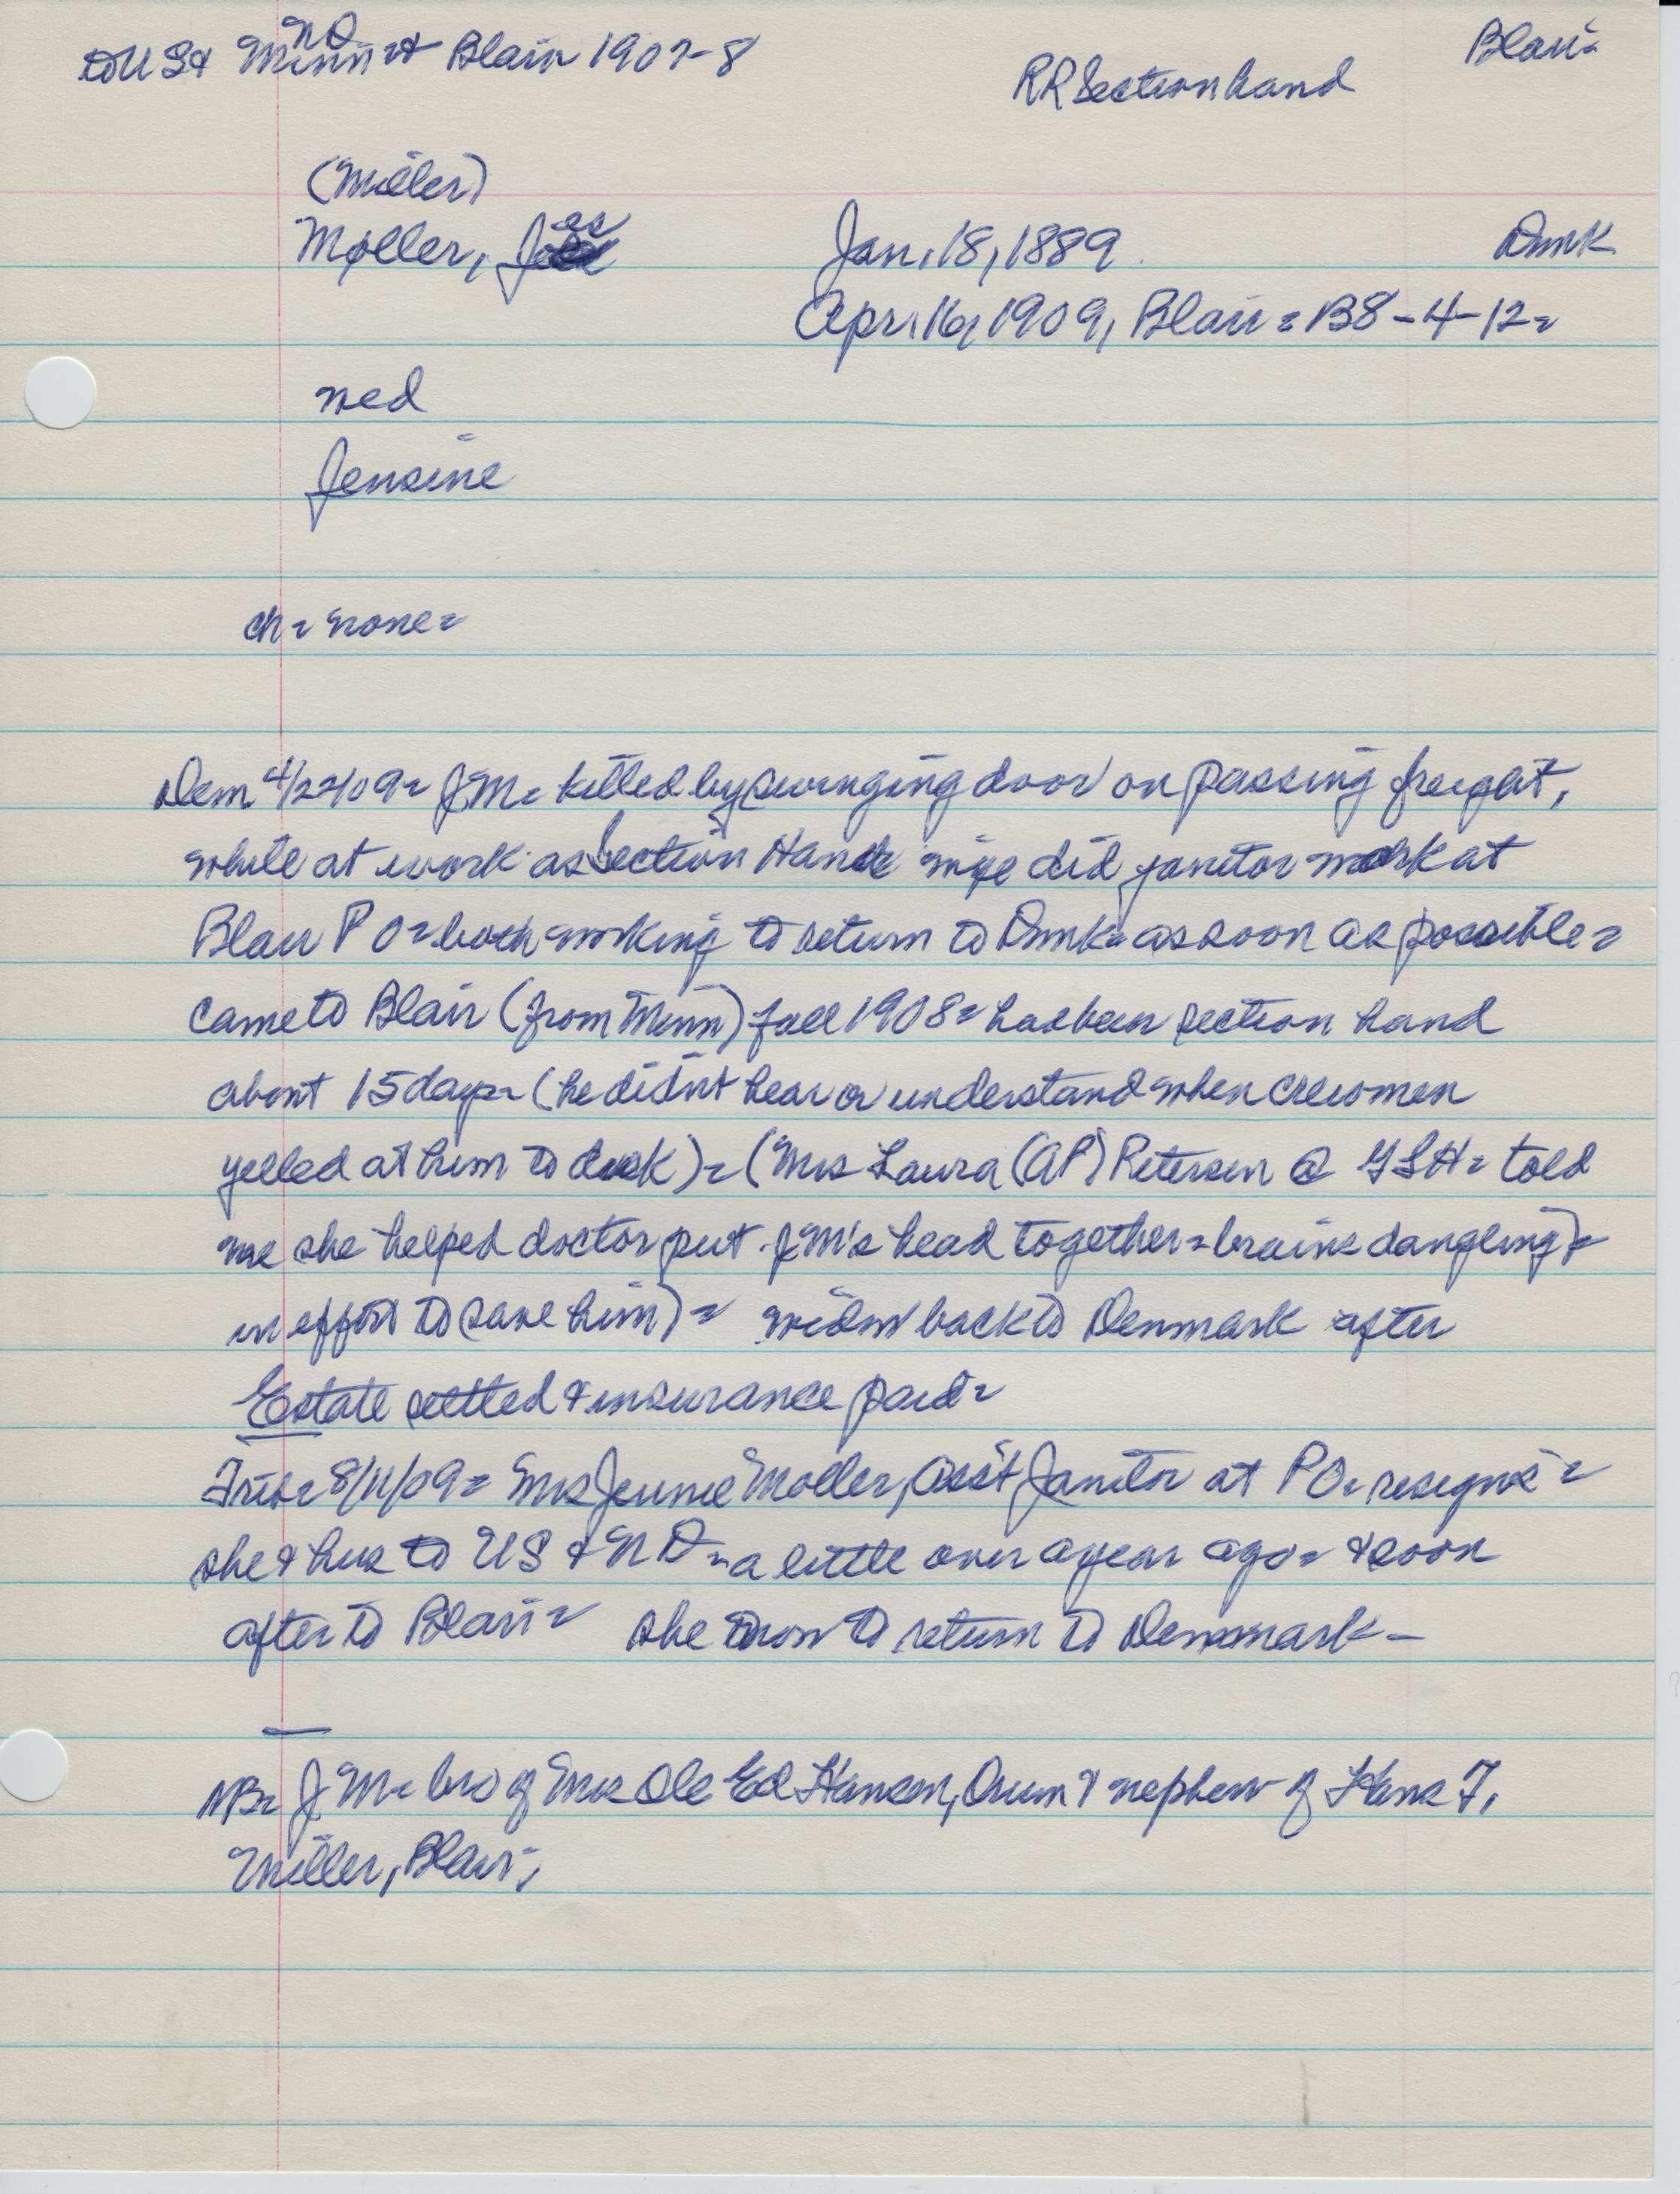 to US & Minn & Blair 1907-8
ND
Blair=
RR Section hand
(Miller)
Møller, Jas
Jan. 18, 1889
Dnmk
Apr. 16, 1909, Blair = B8-4-12=
wed
Jensine
ch = none =
Dem 4/22/09 = JM = killed by swinging door on passing freight,
while at work as Section Hand wife did janitor work at
Blair P O = both working to return to Dnmk = as soon as possible =
came to Blair (from Minn) fall 1908 = has been section hand
about 15 days = (he didn't hear or understand when crewmen
yelled at him to duck) = (Mrs Laura (AP) Petersen @ GSH = told
me she helped doctor put JM's head together = brains dangling =
in effort to save him) = widow back to Denmark after
Estate settled & insurance paid =
Trib = 8/11/09 = Mrs Jennie Moller, Ass't Janitor at P O = resigns =
she & hus to US & N D = a little over a year ago = & soon
after to Blair = she now to return to Denmark -
NB = J M = bro of Mrs Ole Ed Hansen, Orum & nephew of Hans F,
Miller, Blair;